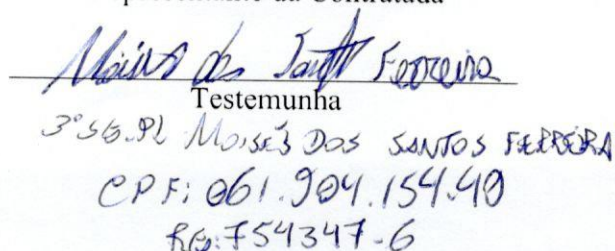 Representante da Contratada
Moisés dos Santos Ferreira
Testemunha
3º SG. PL MOISÉS DOS SANTOS FERREIRA
CPF: 061.904.154-49
RG: 754347-6